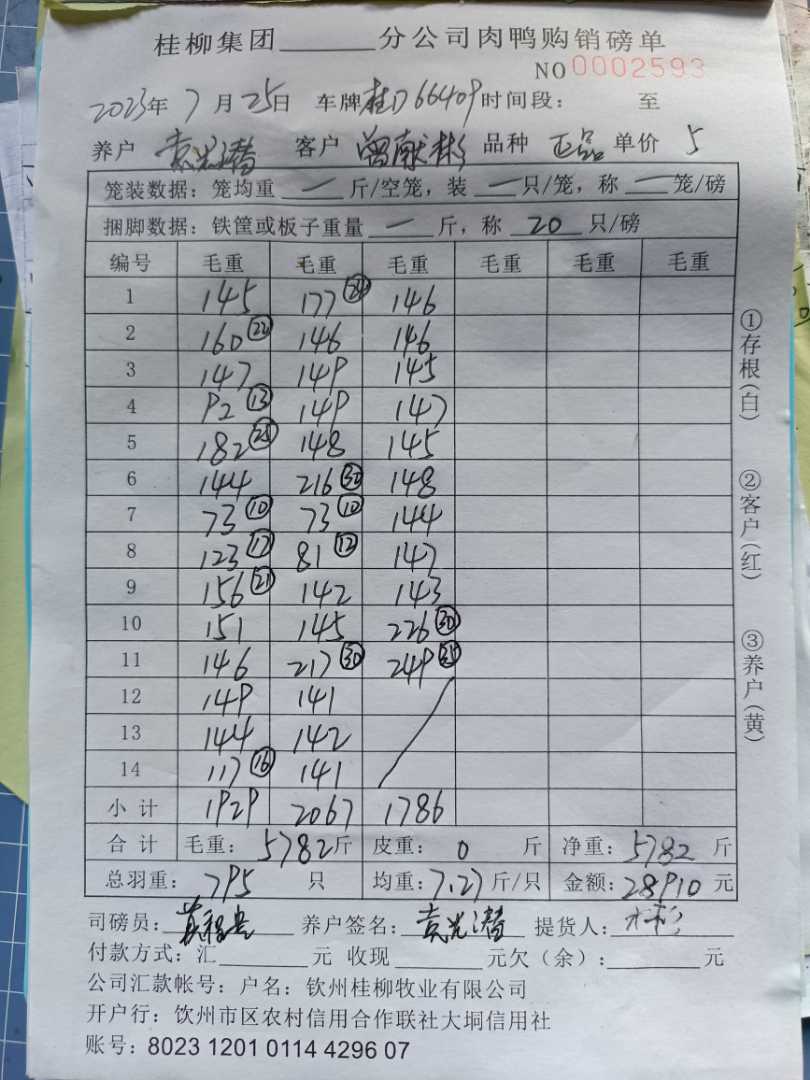 桂柳集团______分公司肉鸭购销磅单
NO 0002593
2023年 7月 25日 车牌 桂D66409 时间段: 至
养户 袁光潜 客户 曾献彬 品种 正品 单价 5
笼装数据:笼均重 — 斤/空笼,装 — 只/笼,称 — 笼/磅
捆脚数据:铁筐或板子重量 — 斤,称 20 只/磅
编号 毛重 毛重 毛重 毛重 毛重 毛重
1 145 177 ㉔ 146
2 160 ㉒ 146 146
3 147 149 145
4 92 ⑬ 149 147
5 182 ㉕ 148 145
6 144 216 ㉚ 148
7 73 ⑩ 73 ⑩ 144
8 123 ⑰ 81 ⑫ 147
9 156 ㉑ 142 143
10 151 145 226 ㉚
11 146 217 ㉚ 249 ㉟
12 149 141
13 144 142
14 117 ⑯ 141
小计 1929 2067 1786
合计 毛重: 5782 斤 皮重: 0 斤 净重: 5782 斤
总羽重: 795 只 均重: 7.27 斤/只 金额: 28910 元
司磅员: 养户签名: 袁光潜 提货人:
付款方式:汇______元 收现______元欠(余):______元
公司汇款帐号:户名:钦州桂柳牧业有限公司
开户行:饮州市区农村信用合作联社大垌信用社
账号:8023 1201 0114 4296 07
①存根(白)
②客户(红)
③养户(黄)